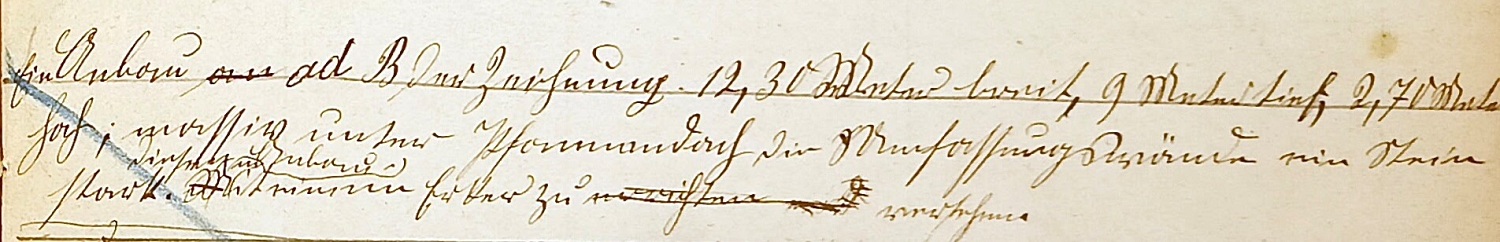 Ein Anbau an ad B der Zeichnung. 12,30 Meter breit, 9 Meter tief, 2,70 Meter
hoch; massiv unter Pfannendach die Umfassungswände ein Stein
diesen Anbau
stark. Mit einem Erker zu errichten versehen.